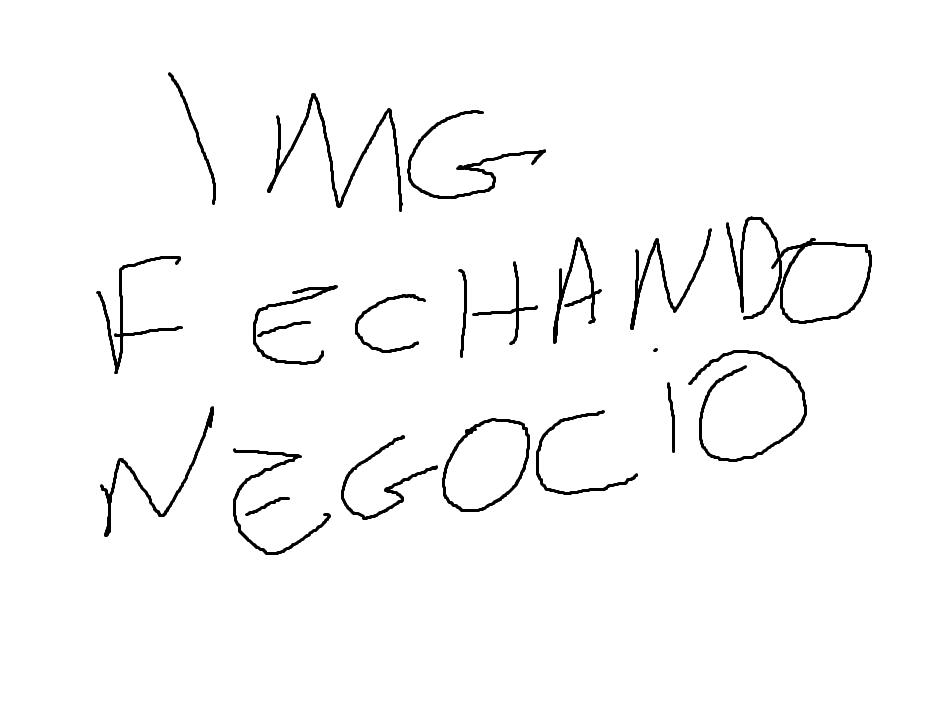 IMG
FECHANDO
NEGOCIO